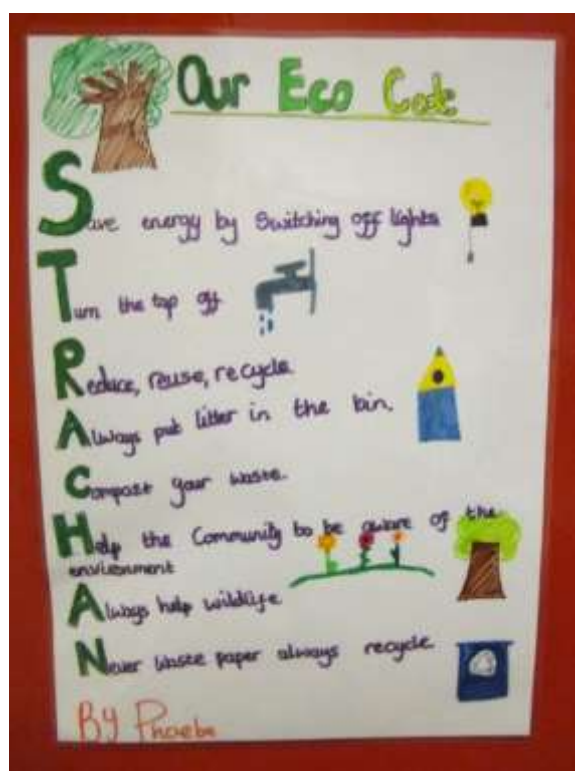 Our Eco Code
Save energy by Switching off lights
Turn the tap off
Reduce, reuse, recycle
Always put litter in the bin.
Compost your waste.
Help the Community to be aware of the
environment
Always help wildlife
Never waste paper always recycle
By Phoebe